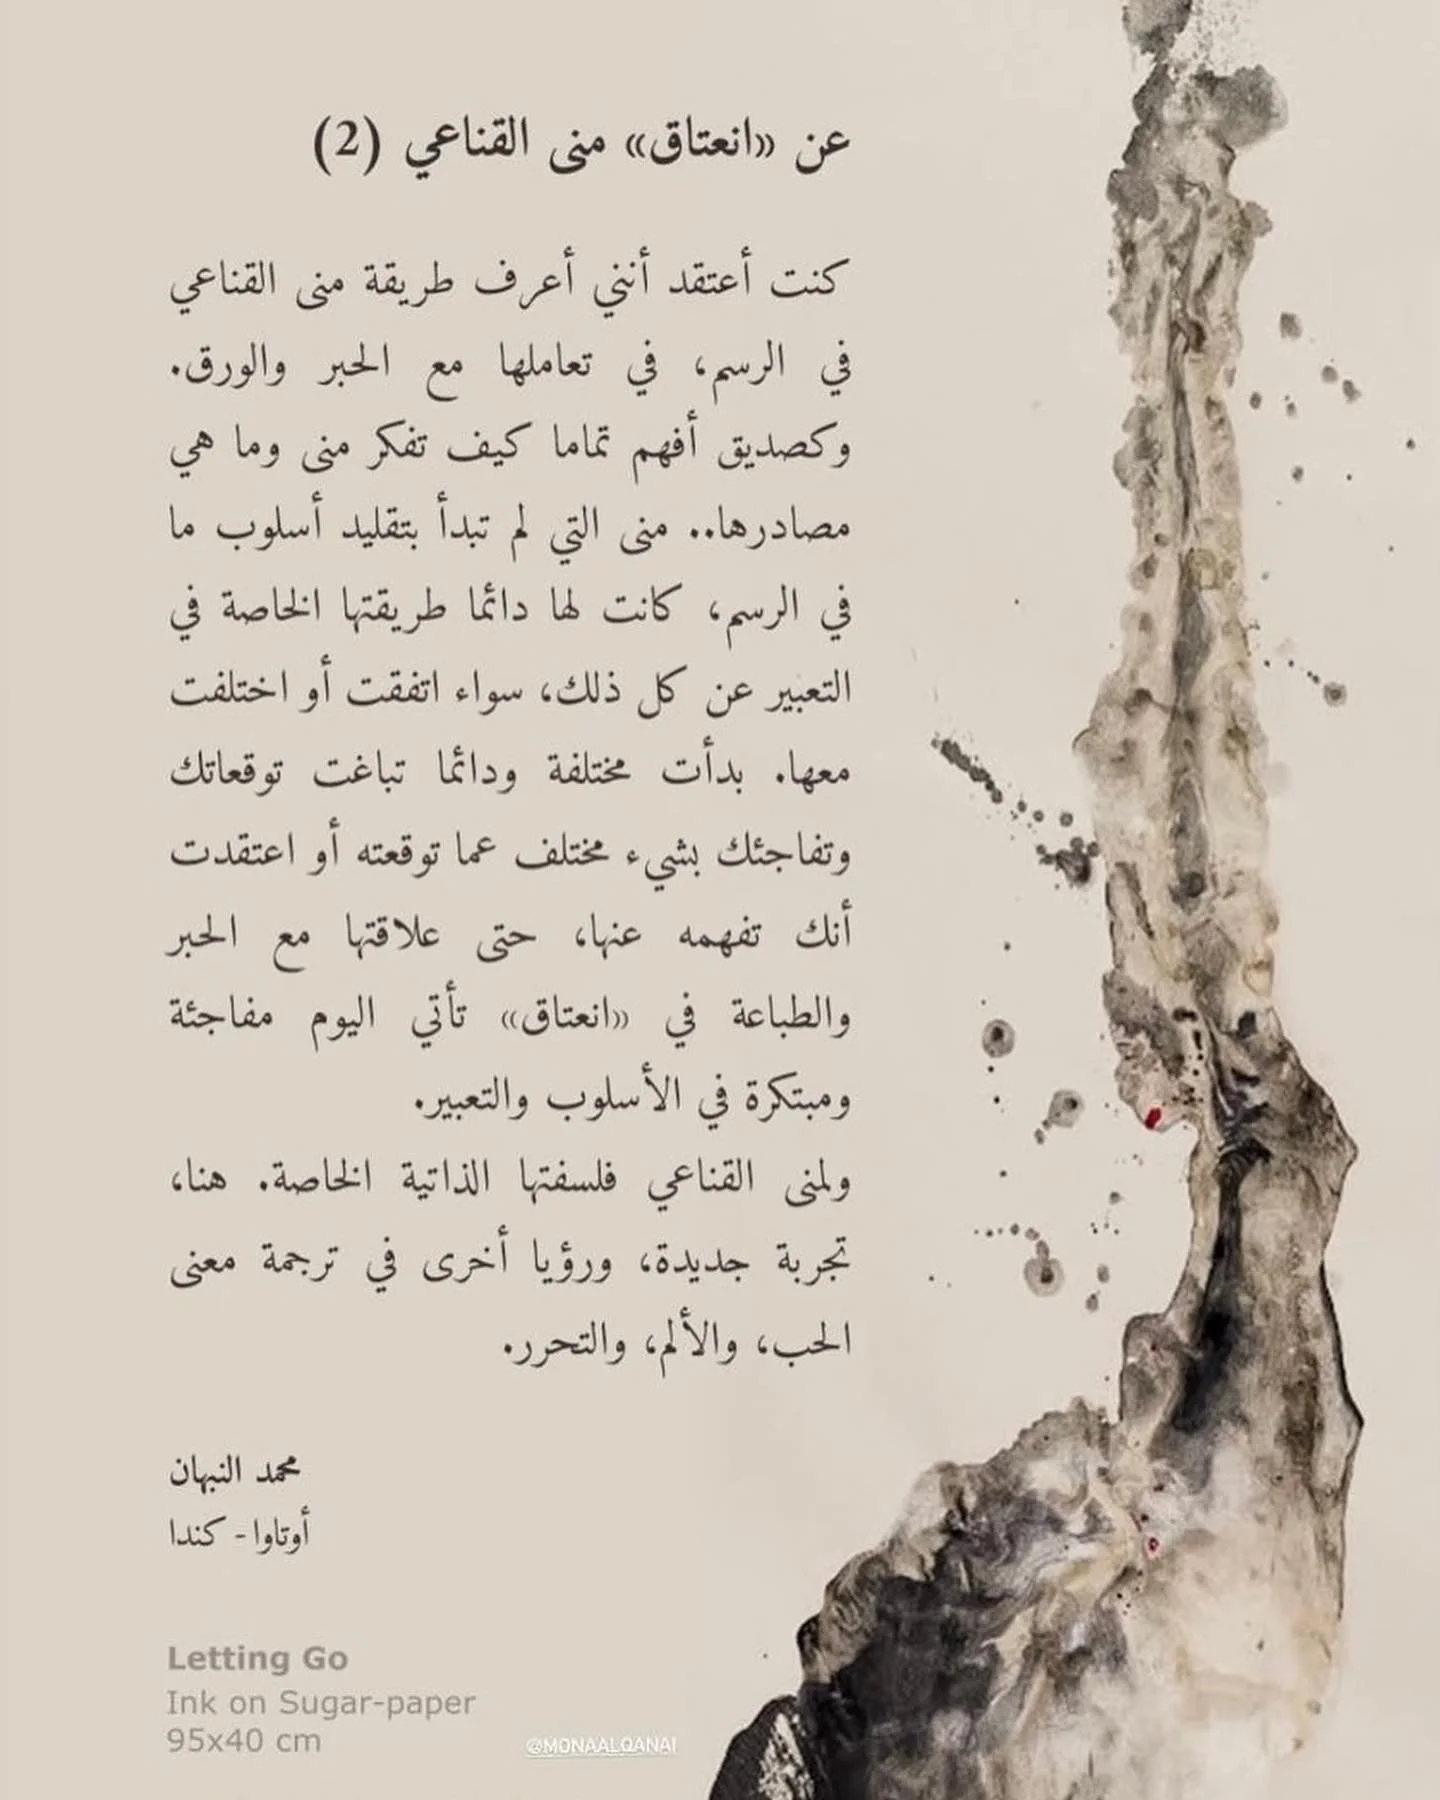 عن «انعتاق» منى القناعي (2)
كنت أعتقد أنني أعرف طريقة منى القناعي
في الرسم، في تعاملها مع الحبر والورق.
وكصديق أفهم تماما كيف تفكر منى وما هي
مصادرها.. منى التي لم تبدأ بتقليد أسلوب ما
في الرسم، كانت لها دائما طريقتها الخاصة في
التعبير عن كل ذلك، سواء اتفقت أو اختلفت
معها. بدأت مختلفة ودائما تباغت توقعاتك
وتفاجئك بشيء مختلف عما توقعته أو اعتقدت
أنك تفهمه عنها، حتى علاقتها مع الحبر
والطباعة في «انعتاق» تأتي اليوم مفاجئة
ومبتكرة في الأسلوب والتعبير.
ولمنى القناعي فلسفتها الذاتية الخاصة. هنا،
تجربة جديدة، ورؤيا أخرى في ترجمة معنى
الحب، والألم، والتحرر.
محمد النبهان
أوتاوا - كندا
Letting Go
Ink on Sugar-paper
95x40 cm
@MONAALQANAI